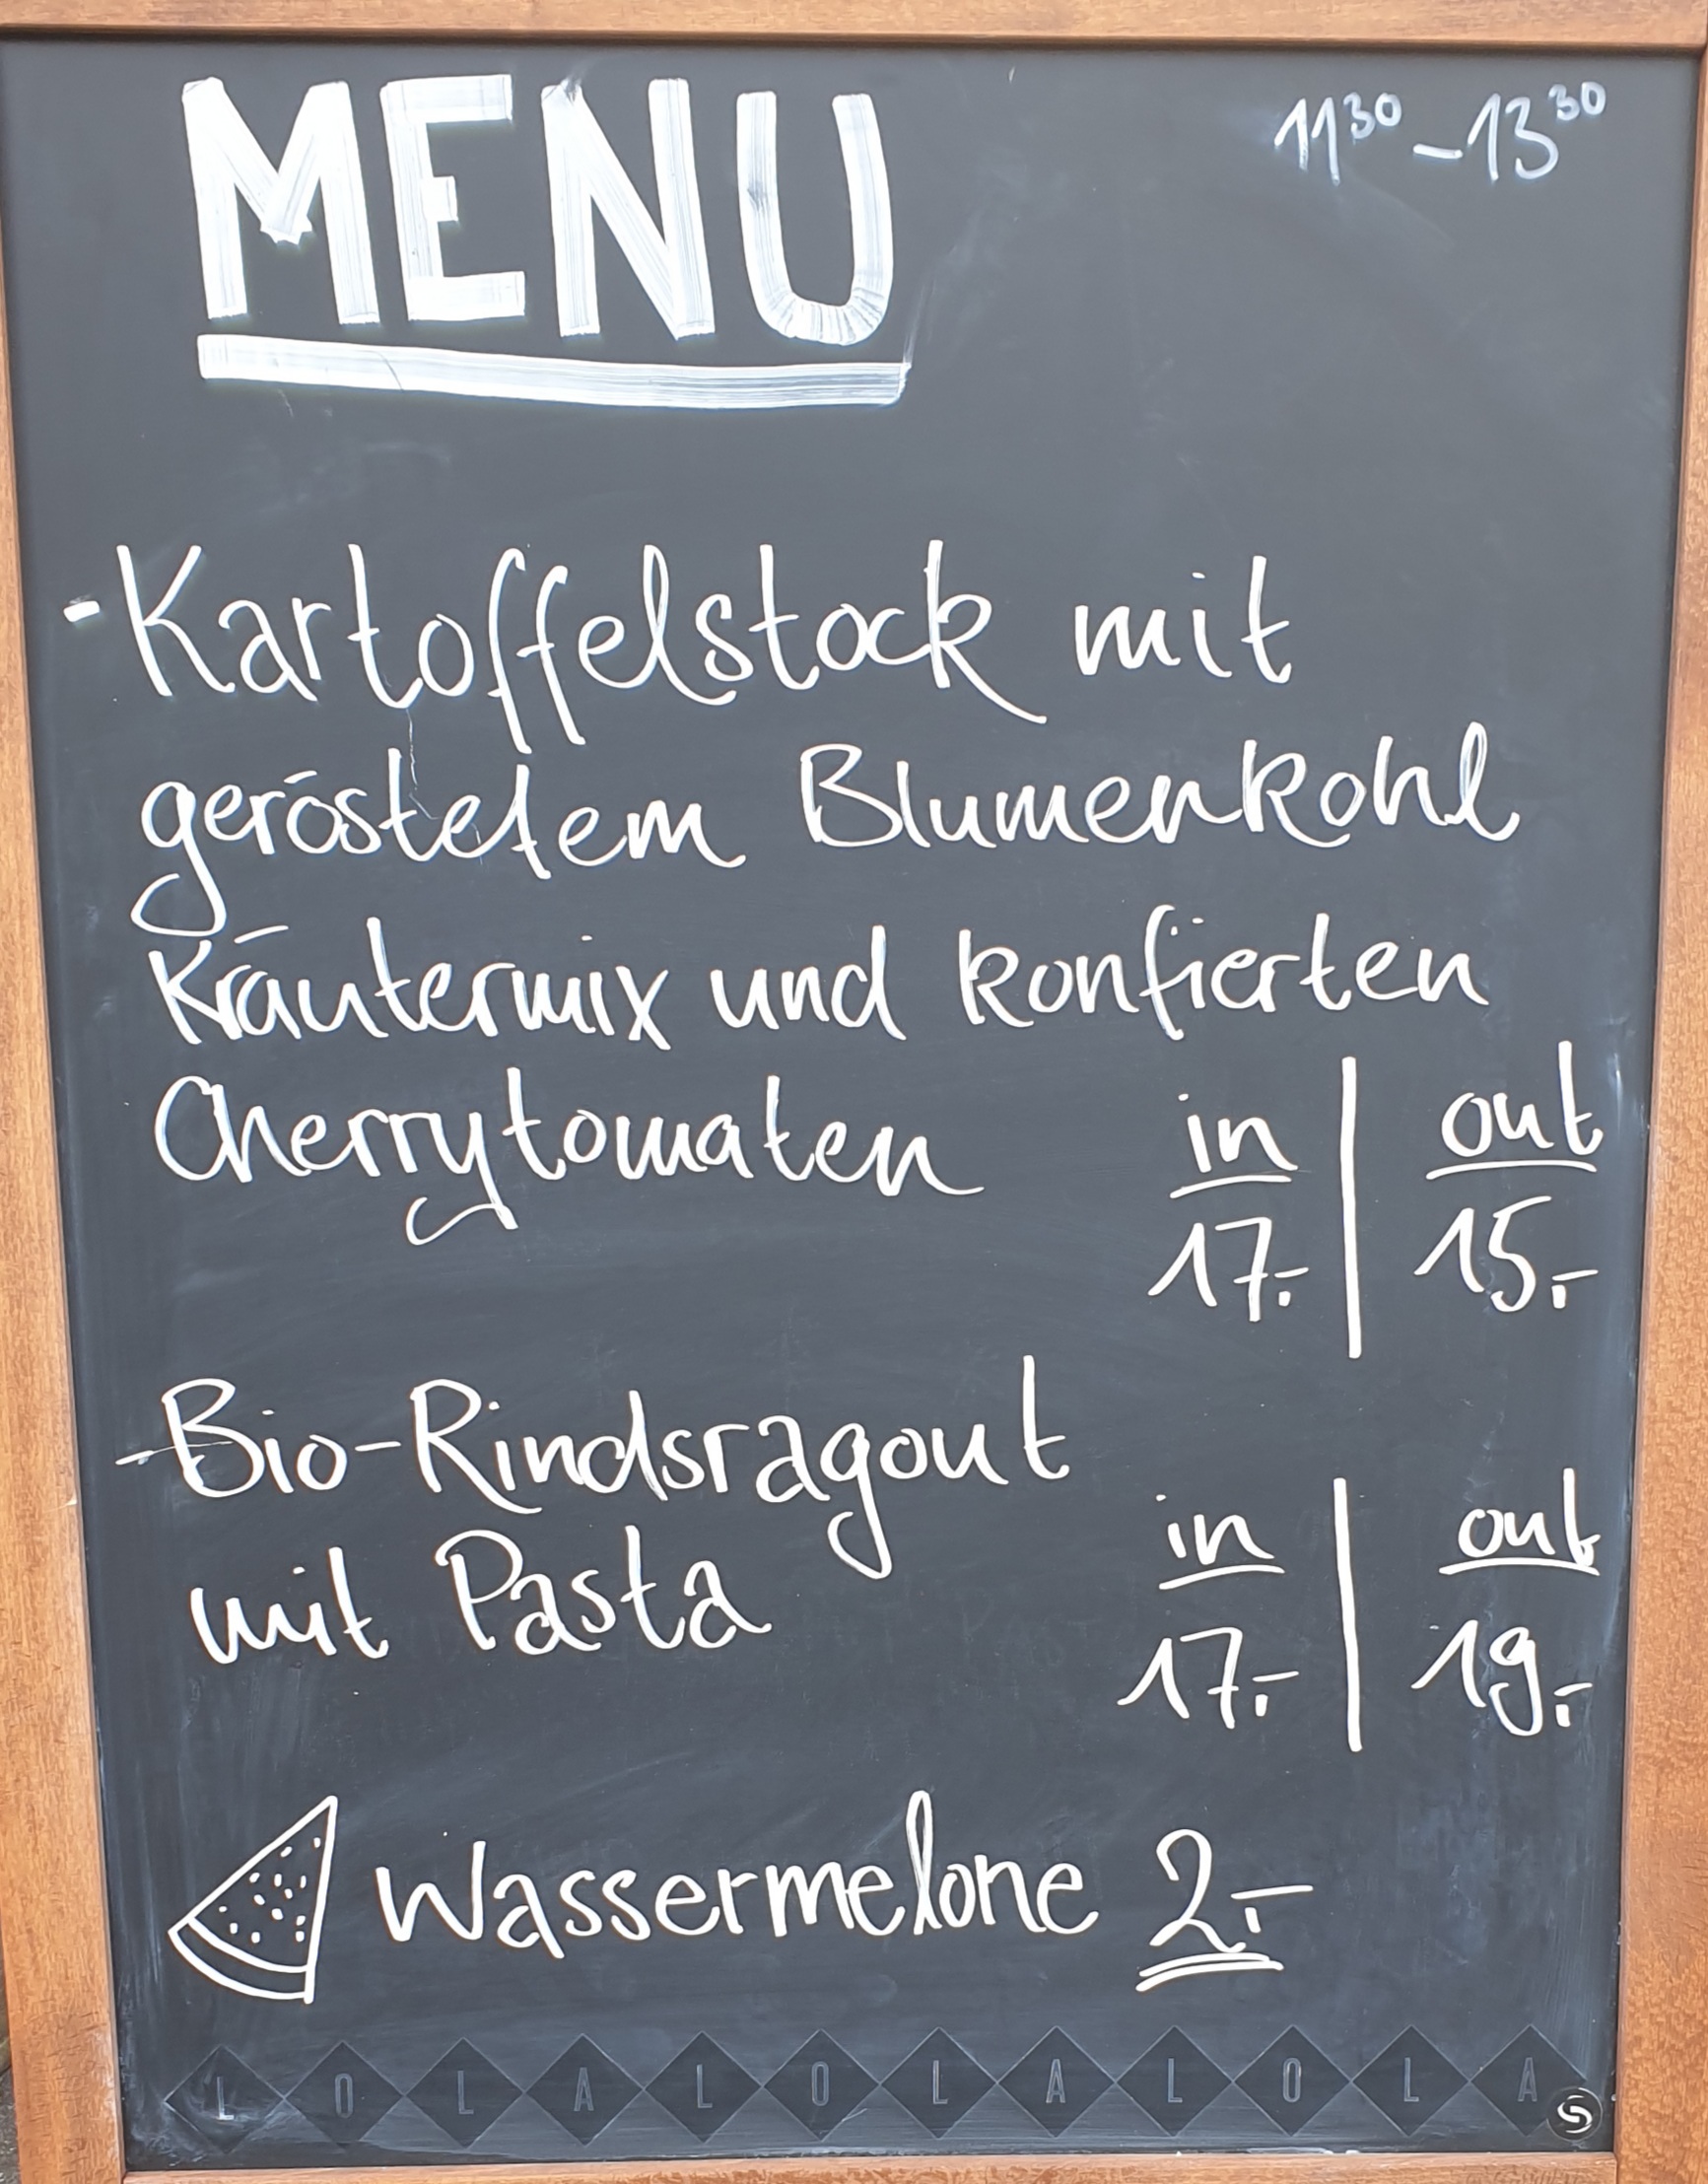 MENU
11³⁰ – 13³⁰
- Kartoffelstock mit
geröstetem Blumenkohl
Kräutermix und konfierten
Cherrytomaten
in | out
17.- | 15.-
- Bio-Rindsragout
mit Pasta
in | out
17.- | 19.-
Wassermelone 2.-
LOLALOLALOLA